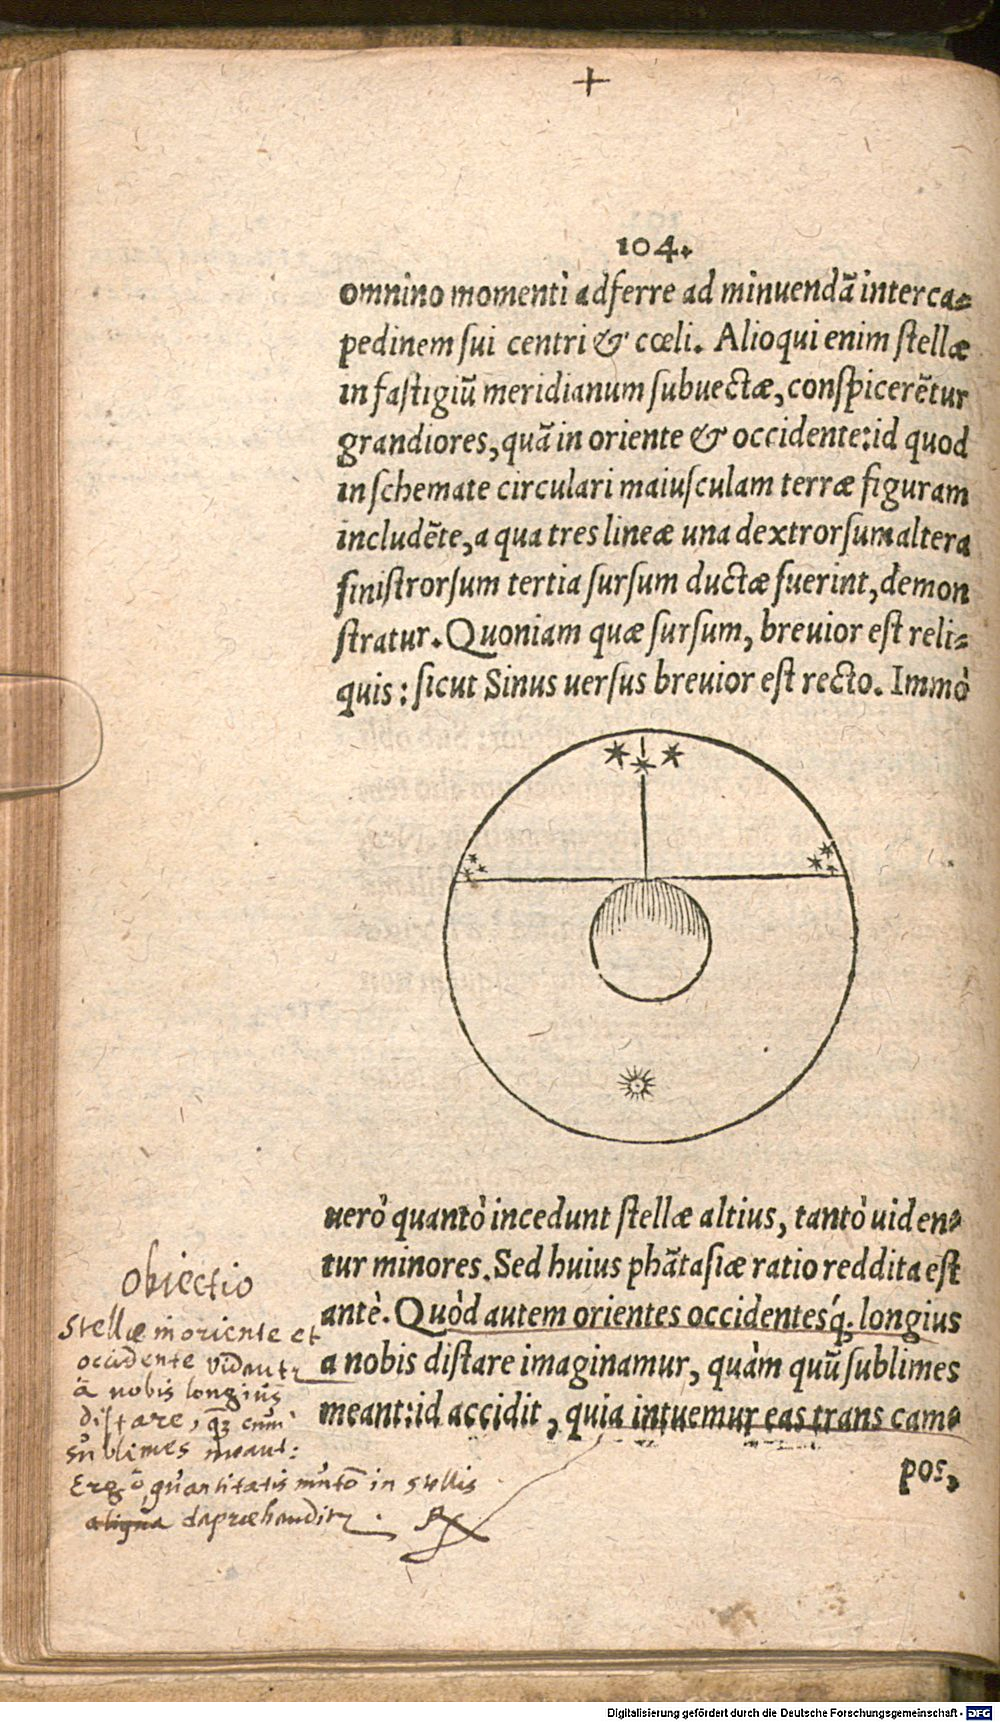 104.
omnino momenti adferre ad minuendā interca-
pedinem sui centri & cœli. Alioqui enim stellæ
in fastigiū meridianum subuectæ, conspicerētur
grandiores, quā in oriente & occidente: id quod
in schemate circulari maiusculam terræ figuram
includēte, a qua tres lineæ una dextrorsum altera
sinistrorsum tertia sursum ductæ fuerint, demon
stratur. Quoniam quæ sursum, breuior est reli-
quis: sicut Sinus uersus breuior est recto. Immò
uerò quantò incedunt stellæ altius, tantò uiden-
tur minores. Sed huius phātasiæ ratio reddita est
antè. Quòd autem orientes occidentesq́; longius
a nobis distare imaginamur, quàm quū sublimes
meant: id accidit, quia intuemur eas trans cam-
pos,
Obiectio
Stellæ in oriente et
occidente vidēntr
ā nobis longius
distare, quā cum
sublimes meant:
Ergò quantitatis mutō in stellis
aliqua dapræhenditr
Digitalisierung gefördert durch die Deutsche Forschungsgemeinschaft - DFG